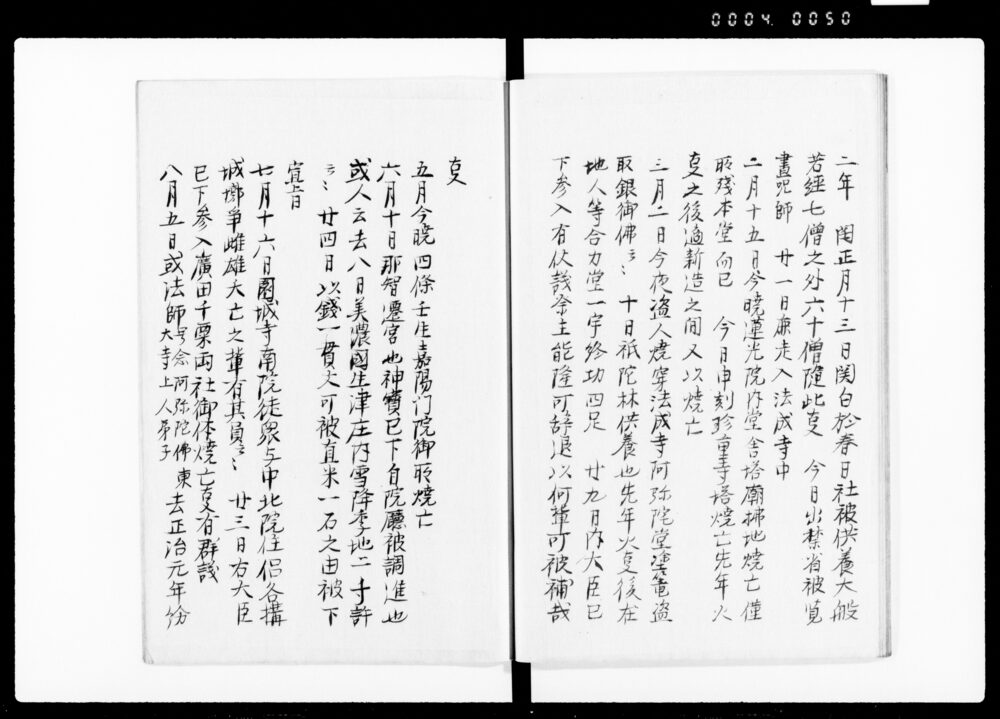 0004. 0050
二年　閏正月十三日関白於春日社被供養大般
若経七僧之外六十僧随此㕝　今日出禁省被覧
晝呪師　廿一日廉走入法成寺中
二月十五日今暁蓮光院内堂舎塔廟拂地焼亡僅
所残本堂而已　今日申刻珎重寺塔焼亡先年火
㕝之後適新造之間又以焼亡
三月二日今夜盗人焼穿法成寺阿弥陀堂塗篭盗
取銀御佛云〻　十日祇陀林供養也先年火㕝後在
地人等合力堂一宇終功四足　廿九日内大臣已
下参入有仗議祭主能隆可辞退以何輩可被補哉
㕝
五月今暁四條壬生嘉陽门院御所焼亡
六月十日那智遷宮也神寶已下自院廳被調進也
或人云去八日美濃國生津庄内雪降委地二寸許
云〻　廿四日以錢一貫文可被直米一石之由被下
宣旨
七月十六日園城寺南院徒衆与中北院住侶各搆
城塹争雌雄夭亡之輩有其員云〻　廿三日右大臣
已下参入廣田千栗両社御体焼亡㕝有群議
八月五日或法師号念阿弥陀佛東大寺上人弟子去正治元年份